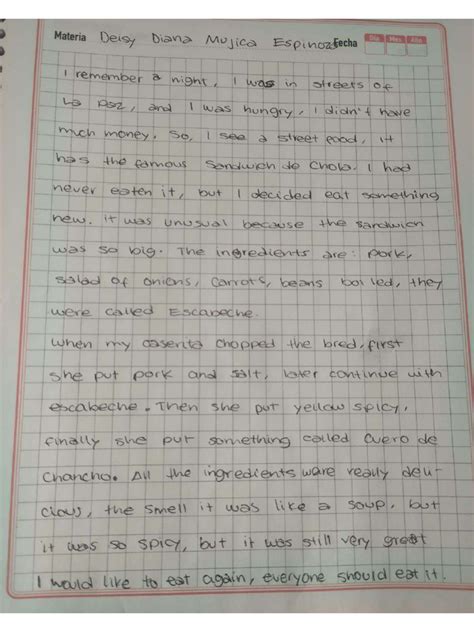 Materia Deisy Diana Mujica Espinoza Fecha Dia Mes Año
I remember a night, I was in streets of
La paz, and I was hungry, I didn't have
much money. So, I see a street food, it
has the famous Sandwich de Chola. I had
never eaten it, but I decided eat something
new. it was unusual because the sandwich
was so big. The ingredients are: pork,
salad of onions, carrots, beans boiled, they
were called Escabeche.
when my caserita chopped the bred, first
she put pork and salt, later continue with
escabeche. Then she put yellow spicy,
finally she put something called cuero de
chancho. All the ingredients ware really deli-
cious, the smell it was like a soup, but
it was so spicy, but it was still very great
I would like to eat again, everyone should eat it.